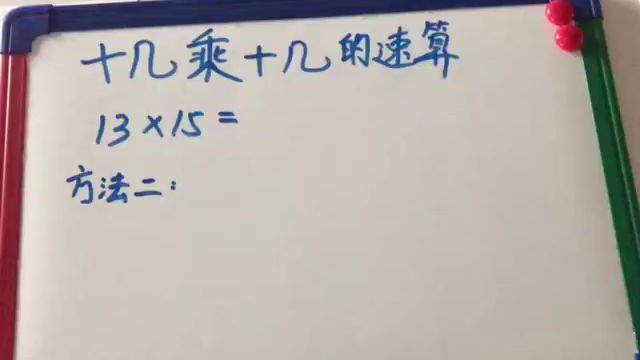 十几乘十几的速算
13×15=
方法二: